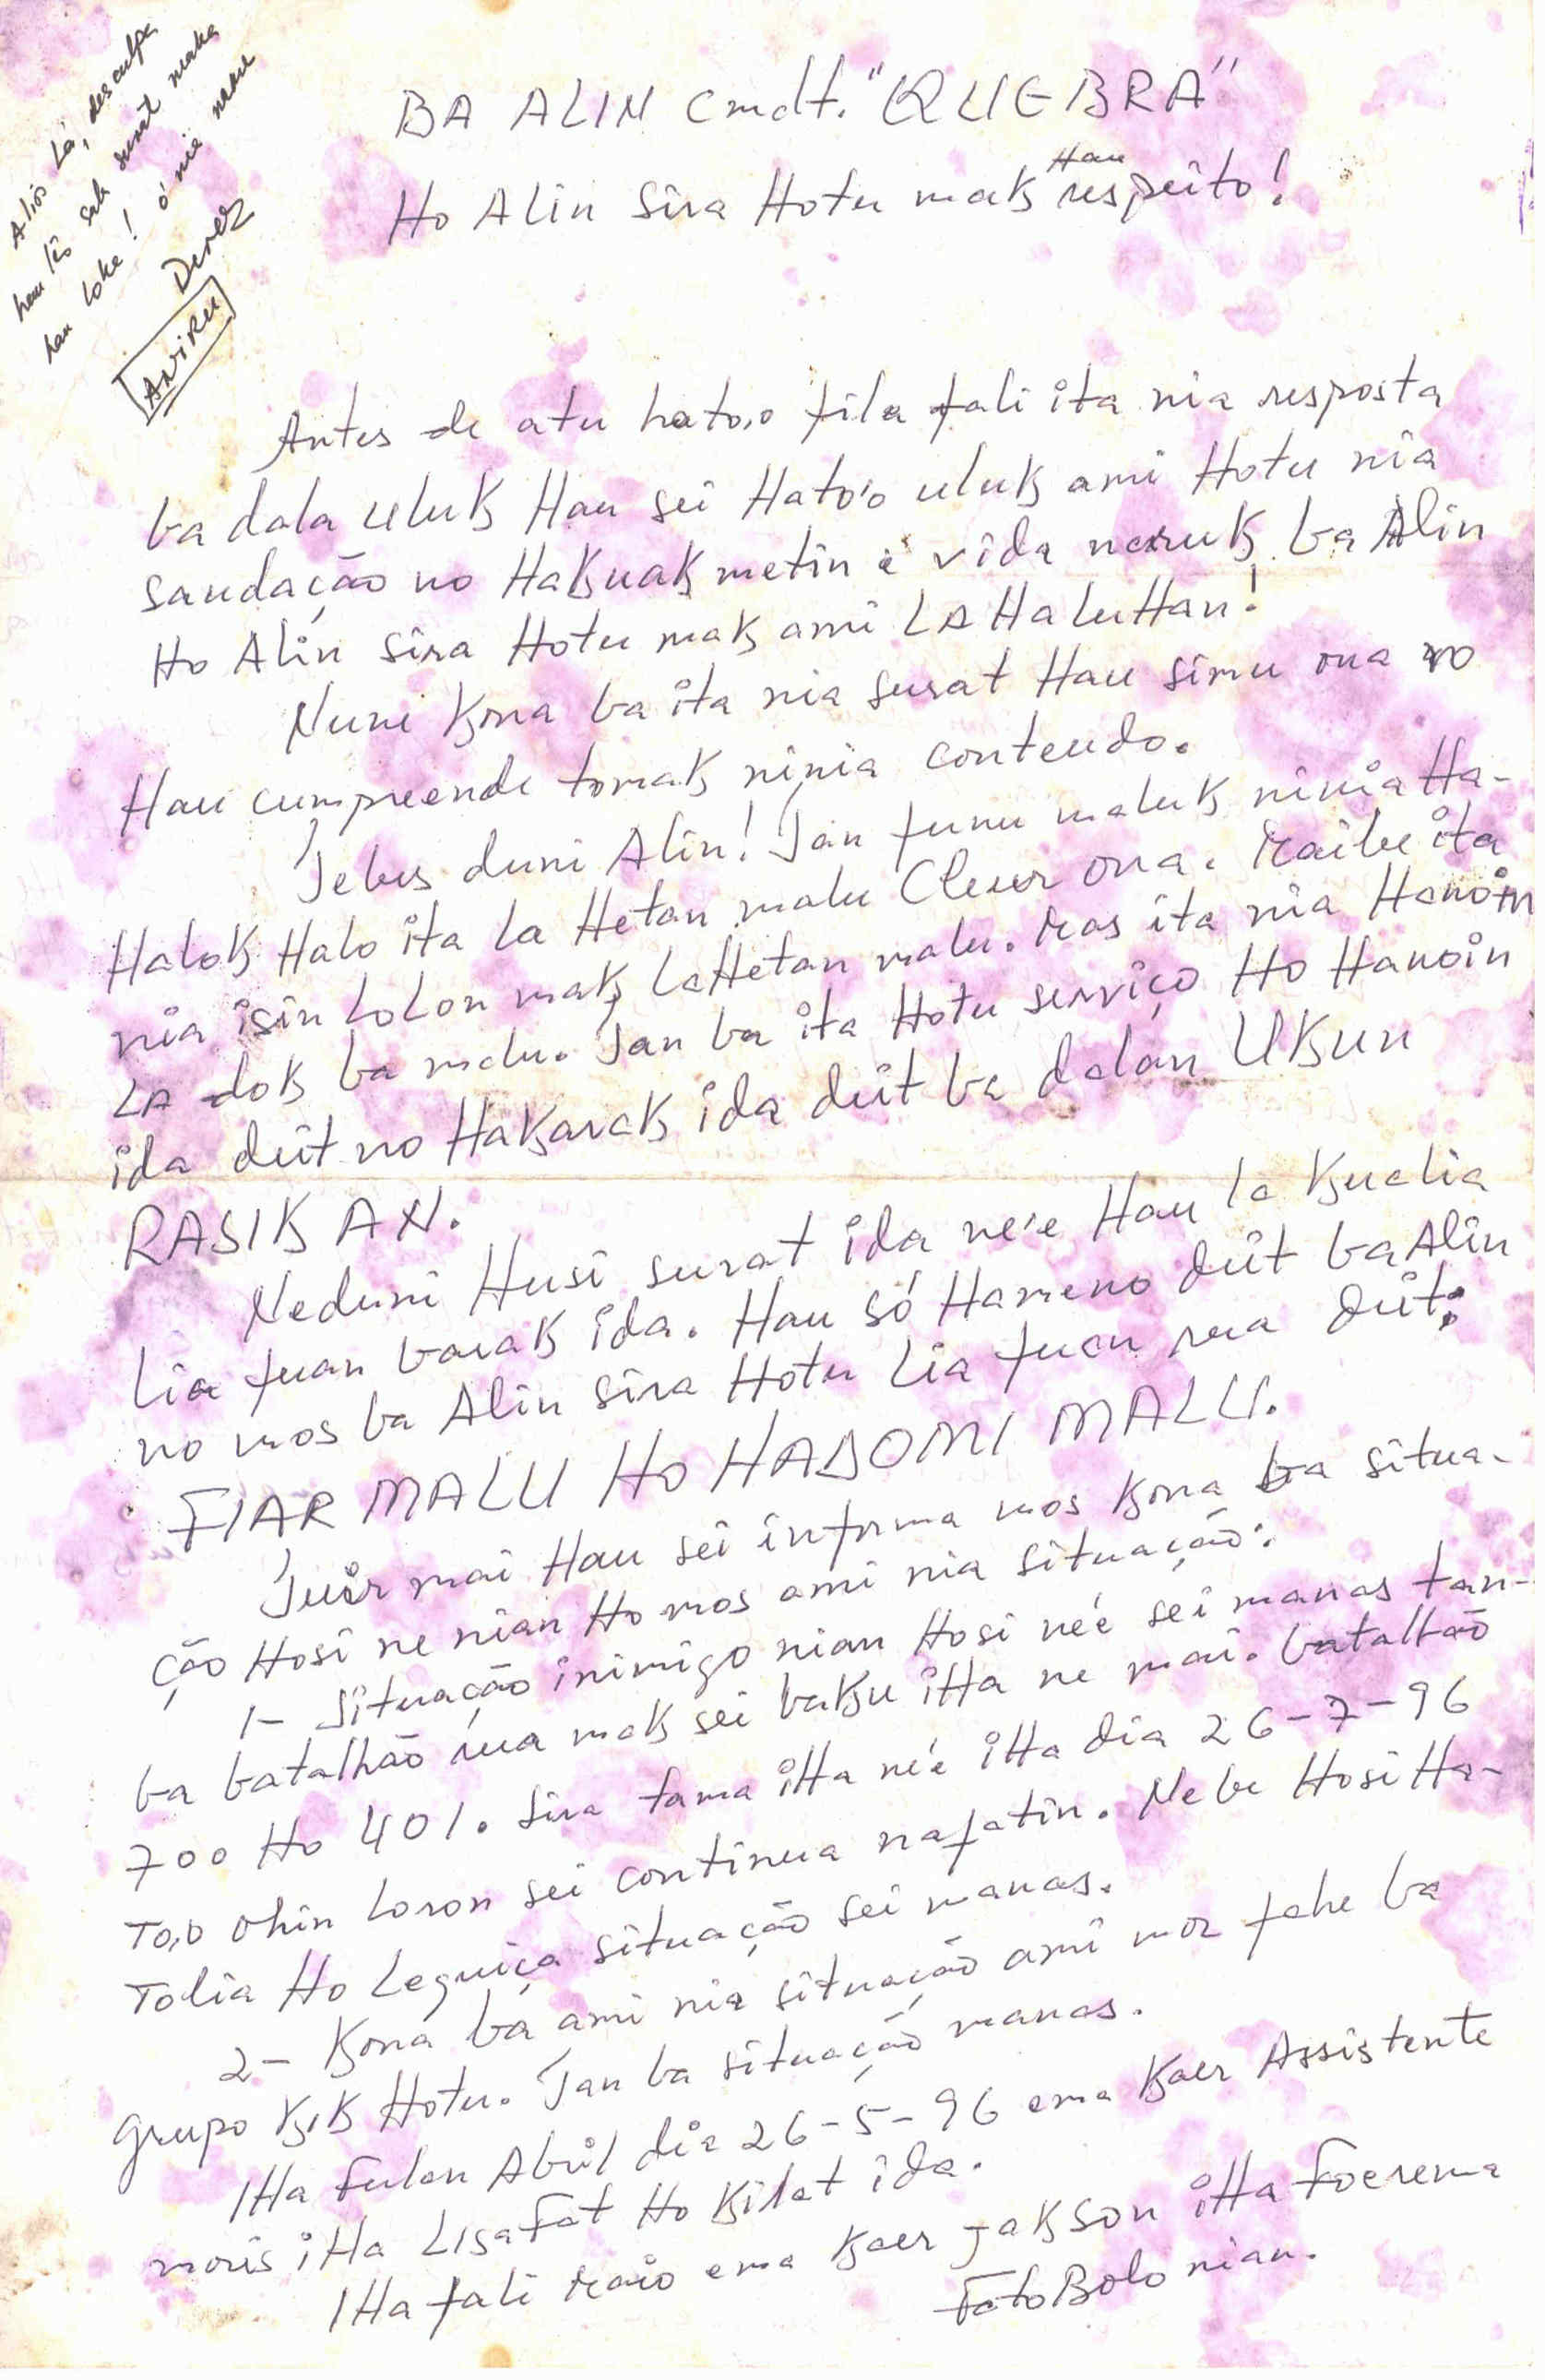 Aliós Lá, desculpa
hau lês sala surat maka
hau loke! ó nia naran
Deker
ANiRU
BA ALIN Cmdt. "QUEBRA"
Ho Alin Sira Hotu mak Hau respeito!
Antes de atu hato,o fila fali ita nia resposta
ba dala uluk Hau sei Hato'o uluk ami Hotu nia
saudação no Hakuak metin e vida naruk ba Alin
Ho Alin sira Hotu mak ami LA HaluHan!
Nune kona ba ita nia surat Hau simu ona no
Hau cumpreende tomak ninia conteudo.
Tebes duni Alin! Tan funu maluk ninia Ha-
Halok Halo ita la Hetan malu Cleur ona. Maibe ita
nia isin LoLon mak LaHetan malu. Mas ita nia Hanoin
LA dok ba malu. Tan ba ita Hotu serviço Ho Hanoin
ida deit no Hakarak ida deit ba dalan UKUN
RASIK AN.
Neduni Husi surat ida ne'e Hau la kualia
Lia fuan barak ida. Hau só Hameno deit ba Alin
no mos ba Alin sira Hotu Lia fuan rua deit:
FIAR MALU Ho HADOMI MALU.
Tuir mai Hau sei informa mos kona ba situa-
ção Hosi ne nian Ho mos ami nia situação:
1- Situação inimigo nian Hosi ne'e sei manas tan-
ba batalhão rua mak sei baku iHa ne mai. batalhão
700 Ho 401. Sira tama iHa ne'e iHa dia 26-7-96
To,o ohin Loron sei continua nafatin. Nebe Hosi Ha-
Tolia Ho Leguiça situação sei manas.
2- Kona ba ami nia situação ami mos fahe ba
grupo kik Hotu. Tan ba situação manas.
IHa Fulan Abril dia 26-5-96 ema kaer Assistente
moris iHa LisaFat Ho kilat ida.
IHa fali Maio ema kaer Jakson iHa Foerema
FatoBolo nian.